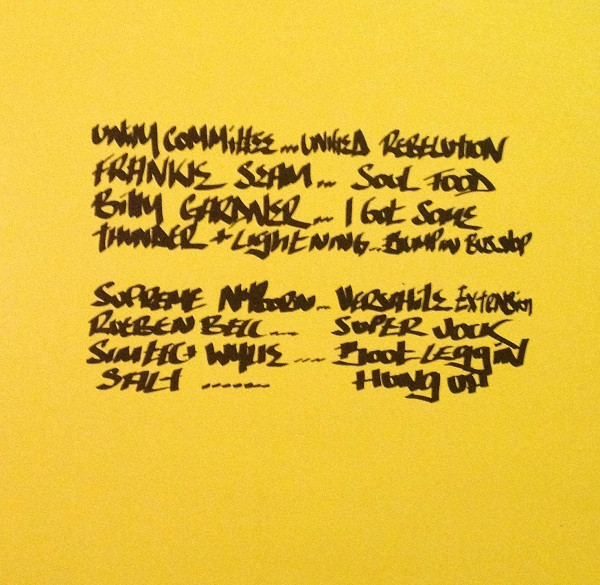 UNITY COMMITTEE ... UNIFIED REBELUTION
FRANKIE SEAM ... SOUL FOOD
Billy GARDNER ... I Got Some
THUNDER + LIGHTNING ... BUMPIN BUS STOP
SUPREME ... VERSATILE EXTENSION
RUEBEN BELL .... SUPER JOCK
SIMTEC + WYLIE .... BOOTLEGGIN
SALT ....... HUNG UP